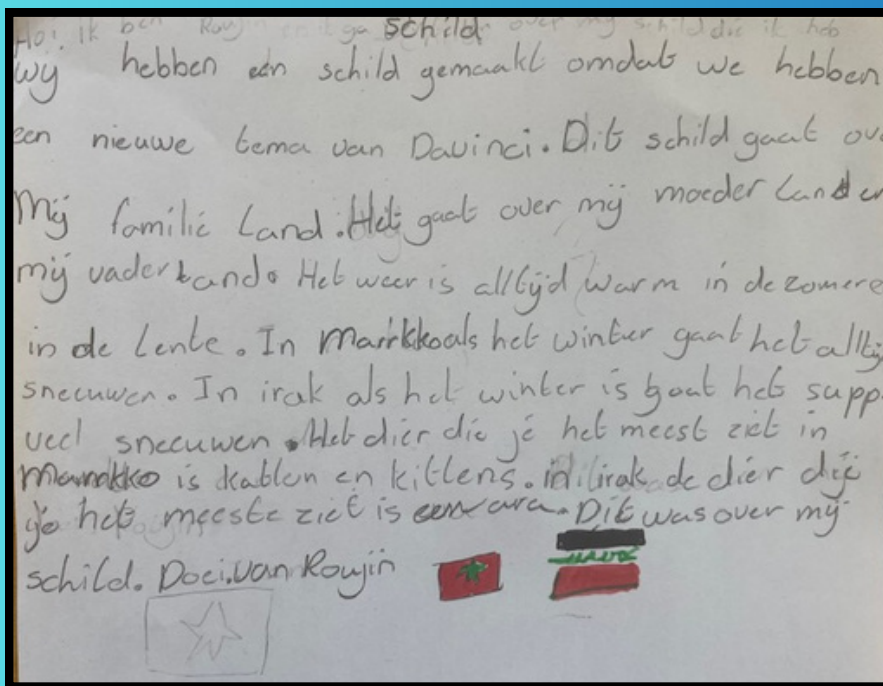 schild
Hoi, ik ben Roujin en ik ga over mij schild die ik heb
wy hebben een schild gemaakt omdat we hebben
een nieuwe tema van Davinci. Dit schild gaat ov
Mij familie Land. Het gaat over mij moeder Land en
mij vader Land. Het weer is alltijd warm in de zomer e
in de Lente. In Marrkko als het winter gaat het alltij
sneeuwen. In irak als het winter is gaat het supp
veel sneeuwen. Het dier die je het meest ziet in
Marrakko is katten en kittens. in irak de dier die
je het meeste ziet is een ara. Dit was over mij
schild. Doei. van Roujin